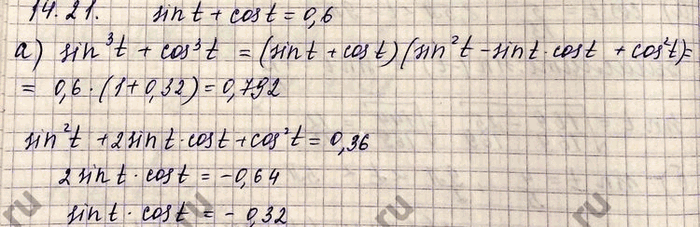 14.21. sin t + cos t = 0,6
а) sin³t + cos³t = (sin t + cos t)(sin²t - sin t · cos t + cos²t) =
= 0,6 · (1 + 0,32) = 0,792
sin²t + 2 sin t · cos t + cos²t = 0,36
2 sin t · cos t = -0,64
sin t · cos t = -0,32
ru
ru
ru